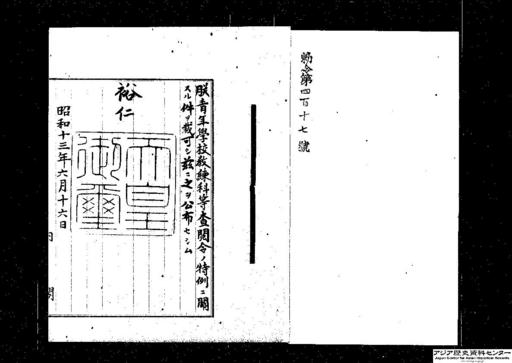 勅令第四百十七號
朕青年學校教練科等査閲令ノ特例ニ關
スル件ヲ裁可シ玆ニ之ヲ公布セシム
裕仁
天皇御璽
昭和十三年六月十六日
アジア歴史資料センター
Japan Center for Asian Historical Records